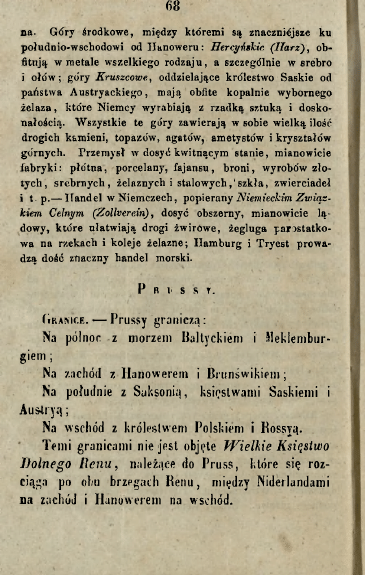 68
na. Góry środkowe, między któremi są znaczniéjsze ku
południo-wschodowi od Hanoweru: Hercyńskie (Harz), ob-
fitują w metale wszelkiego rodzaju, a szczególnie w srebro
i ołów; góry Kruszcowe, oddzielające królestwo Saskie od
państwa Austryackiego, mają obfite kopalnie wybornego
żelaza, które Niemcy wyrabiają z rzadką sztuką i dosko-
nałością. Wszystkie te góry zawierają w sobie wielką ilość
drogich kamieni, topazów, agatów, ametystów i kryształów
górnych. Przemysł w dosyć kwitnącym stanie, mianowicie
fabryki: płótna, porcelany, fajansu, broni, wyrobów zło-
tych, srebrnych, żelaznych i stalowych, szkła, zwierciadeł
i t. p.— Handel w Niemczech, popierany Niemieckim Związ-
kiem Celnym (Zollverein), dosyć obszerny, mianowicie lą-
dowy, które ułatwiają drogi żwirowe, żegluga parostatko-
wa na rzekach i koleje żelazne; Hamburg i Tryest prowa-
dzą dość znaczny handel morski.
PRUSSY.
GRANICE. — Prussy graniczą:
Na północ z morzem Baltyckiem i Meklembur-
giem;
Na zachód z Hanowerem i Brunświkiem;
Na południe z Saksonią, księstwami Saskiemi i
Austryą;
Na wschód z królestwem Polskiém i Rossyą.
Temi granicami nie jest objęte Wielkie Księstwo
Dolnego Renu, należące do Pruss, które się roz-
ciąga po obu brzegach Renu, między Niderlandami
na zachód i Hanowerem na wschód.